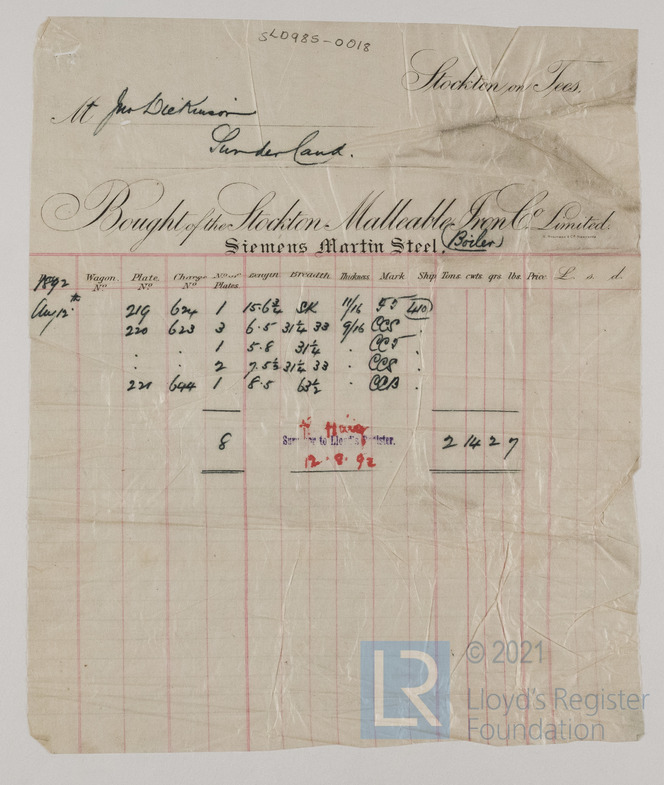 SLD985-0018
Stockton on Tees.
Mr Jno Dickinson
Sunderland.
Bought of the Stockton Malleable Iron Co. Limited.
Siemens Martin Steel. (Boiler)
1892 Wagon No. Plate No. Charge No. No. of Plates. Length Breadth. Thickness. Mark Ship Tons. cwts. qrs lbs. Price £. s. d.
Aug 12th 219 624 1 15.6¾ SK 11/16 410
220 623 3 6.5 31¼ 33 9/16 CCS "
" " 1 5.8 31¼ " "
" " 2 7.5½ 31¼ 33 " CCS "
221 644 1 8.5 63½ " CCB "
8 2 14 2 7
Surveyor to Lloyd's Register.
12.8.92
© 2021
LR
Lloyd's Register
Foundation